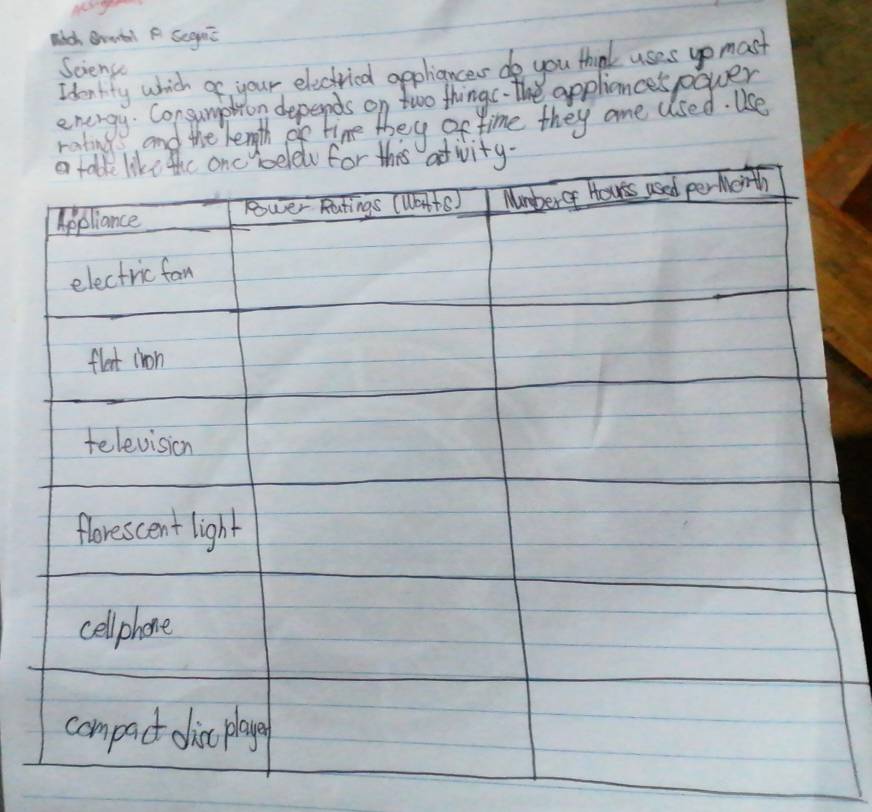 Science
Identity which of your electrical appliances do you think uses up most
energy. Consumption depends on two things - The appliances power
ratings and the length of time they of time they are used. Use
a table like the one below for this activity.
Appliance Power Ratings (Watts) Number of Hours used per Month
electric fan
flat iron
television
florescent light
cellphone
compact disc player